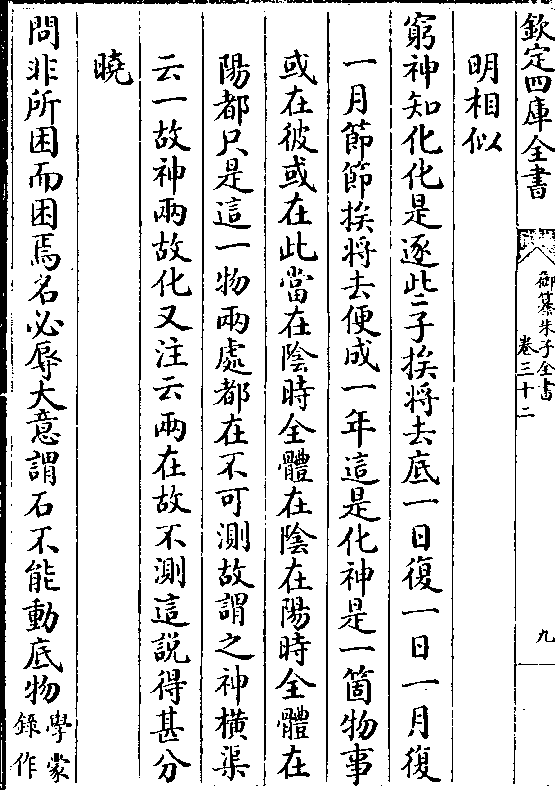 欽定四庫全書
御纂朱子全書
卷三十二
九
明相似
窮神知化化是逐些子挨將去底一日復一日一月復
一月節節挨將去便成一年這是化神是一箇物事
或在彼或在此當在陰時全體在陰在陽時全體在
陽都只是這一物兩處都在不可測故謂之神橫渠
云一故神兩故化又注云兩在故不測這説得甚分
曉
問非所困而困焉名必辱大意謂石不能動底物學蒙
録作